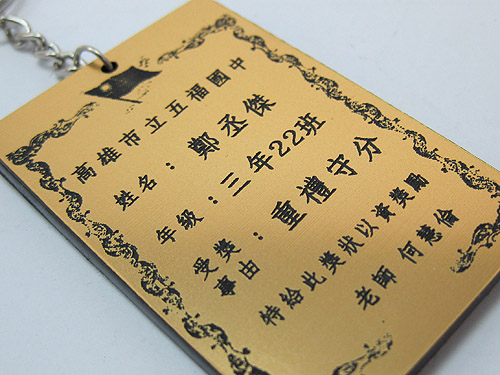 高雄市立五福國中
姓名：鄭丞傑
年級：三年22班
受獎事由：重禮守分
特給此獎狀以資獎勵
老師 何慧倫